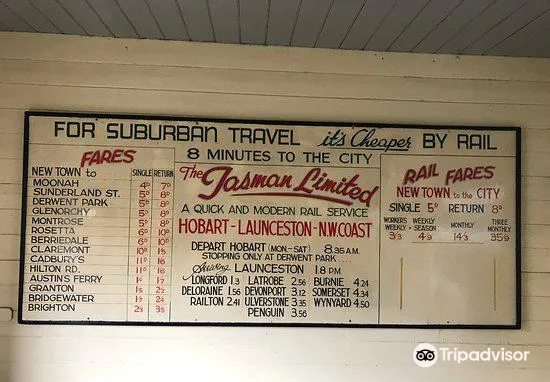 FOR SUBURBAN TRAVEL it's Cheaper BY RAIL
8 MINUTES TO THE CITY
FARES
NEW TOWN to SINGLE RETURN
MOONAH 4D 7D
SUNDERLAND ST. 5D 8D
DERWENT PARK 5D 8D
GLENORCHY 5D 8D
MONTROSE 5D 8D
ROSETTA 6D 10D
BERRIEDALE 6D 10D
CLAREMONT 10D
CADBURY'S 11D
HILTON RD. 11D
AUSTIN'S FERRY
GRANTON
BRIDGEWATER
BRIGHTON
The Tasman Limited
A QUICK AND MODERN RAIL SERVICE
HOBART - LAUNCESTON - N.W. COAST
DEPART HOBART (MON.-SAT.) 8.35 A.M.
STOPPING ONLY AT DERWENT PARK....
Arriving LAUNCESTON 1.8 P.M
LONGFORD 1.3 LATROBE 2.56 BURNIE 4.24
DELORAINE 1.56 DEVONPORT 3.12 SOMERSET 4.34
RAILTON 2.41 ULVERSTONE 3.35 WYNYARD 4.50
PENGUIN 3.56
RAIL FARES
NEW TOWN to the CITY
SINGLE 5D RETURN 8D
WORKERS WEEKLY WEEKLY SEASON MONTHLY THREE MONTHLY
3/3 4/9 14/3 35/9
Tripadvisor